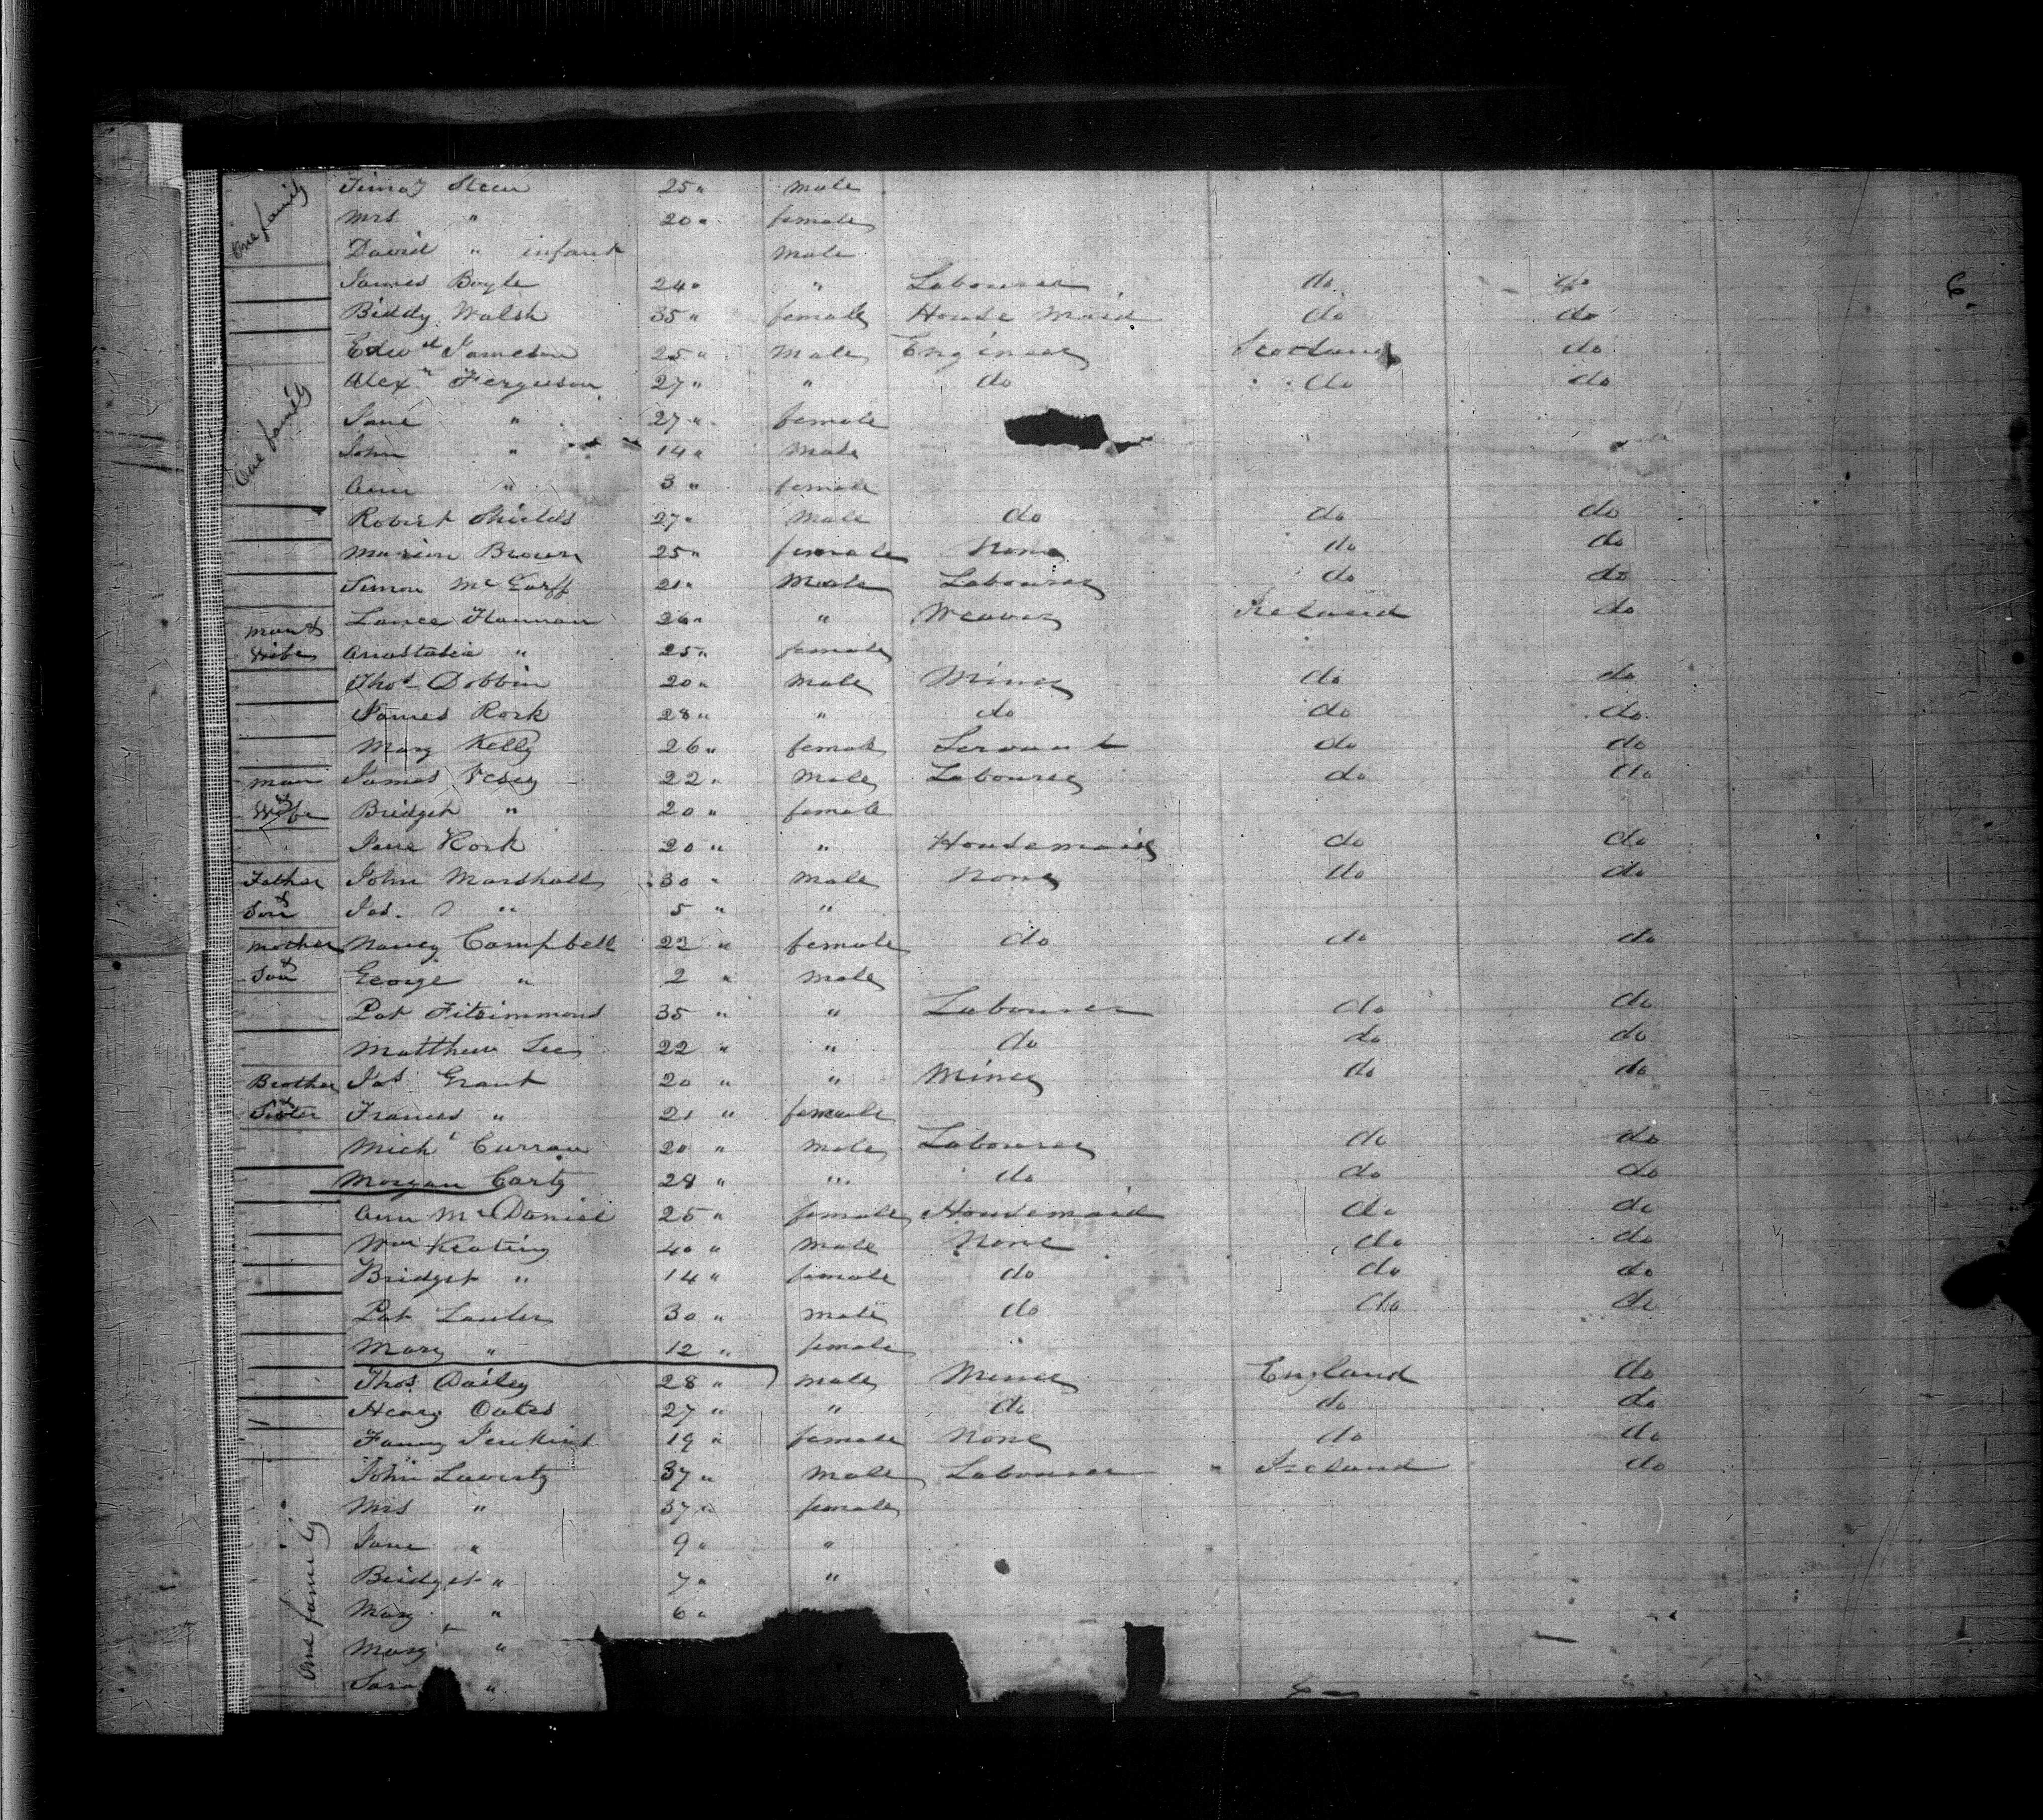 One family Timoy Steen 25 " male
Mrs " 20 " female
David " infant male
James Boyle 24 " " Labourer do do 6
Biddy Walsh 35 " female House Maid do do
Edwd Jameson 25 " Male Engineer Scotland do
One family Alexr Ferguson 27 " " do do do
Jane " 27 " female
John " 14 " Male
Ann " 3 " female
Robert Shields 27 " Male do do do
Marion Brown 25 " female None do do
Simon Mc 21 " Male Labourer do do
Man & Lance Hannan 26 " " Weaver Ireland do
Wife Anastatia " 25 " female
Thos Dobbin 20 " Male Miner do do
James Rork 28 " " do do do
Mary Kelly 26 " female Servant do do
Man James Vesey 22 " Male Labourer do do
& Wife Bridget " 20 " female
Jane Rork 20 " " Housemaid do do
Father John Marshall 30 " Male None do do
& Son Jas. " 5 " "
Mother Nancy Campbell 22 " female do do do
& Son George " 2 " male
Pat Fitsimmons 35 " " Labourer do do
Matthew Lee 22 " " do do do
Brother Jas Grant 20 " " Miner do do
& Sister Frances " 21 " female
Michl Curran 20 " male Labourer do do
Morgan Carty 28 " " do do do
Ann McDaniel 25 " female Housemaid do do
Wm Keating 40 " Male None do do
Bridget " 14 " female do do do
Pat Lauler 30 " male do do do
Mary " 12 " female
Thos Dailey 28 " male Miner England do
Henry Oates 27 " " do do do
Fanny Jenkins 19 " female None do do
One family John Laverty 37 " Male Labourer " Ireland do
Mrs " 37 " female
Jane " 9 " "
Bridget " 7 " "
Mary " 6 "
Mary "
Sara "